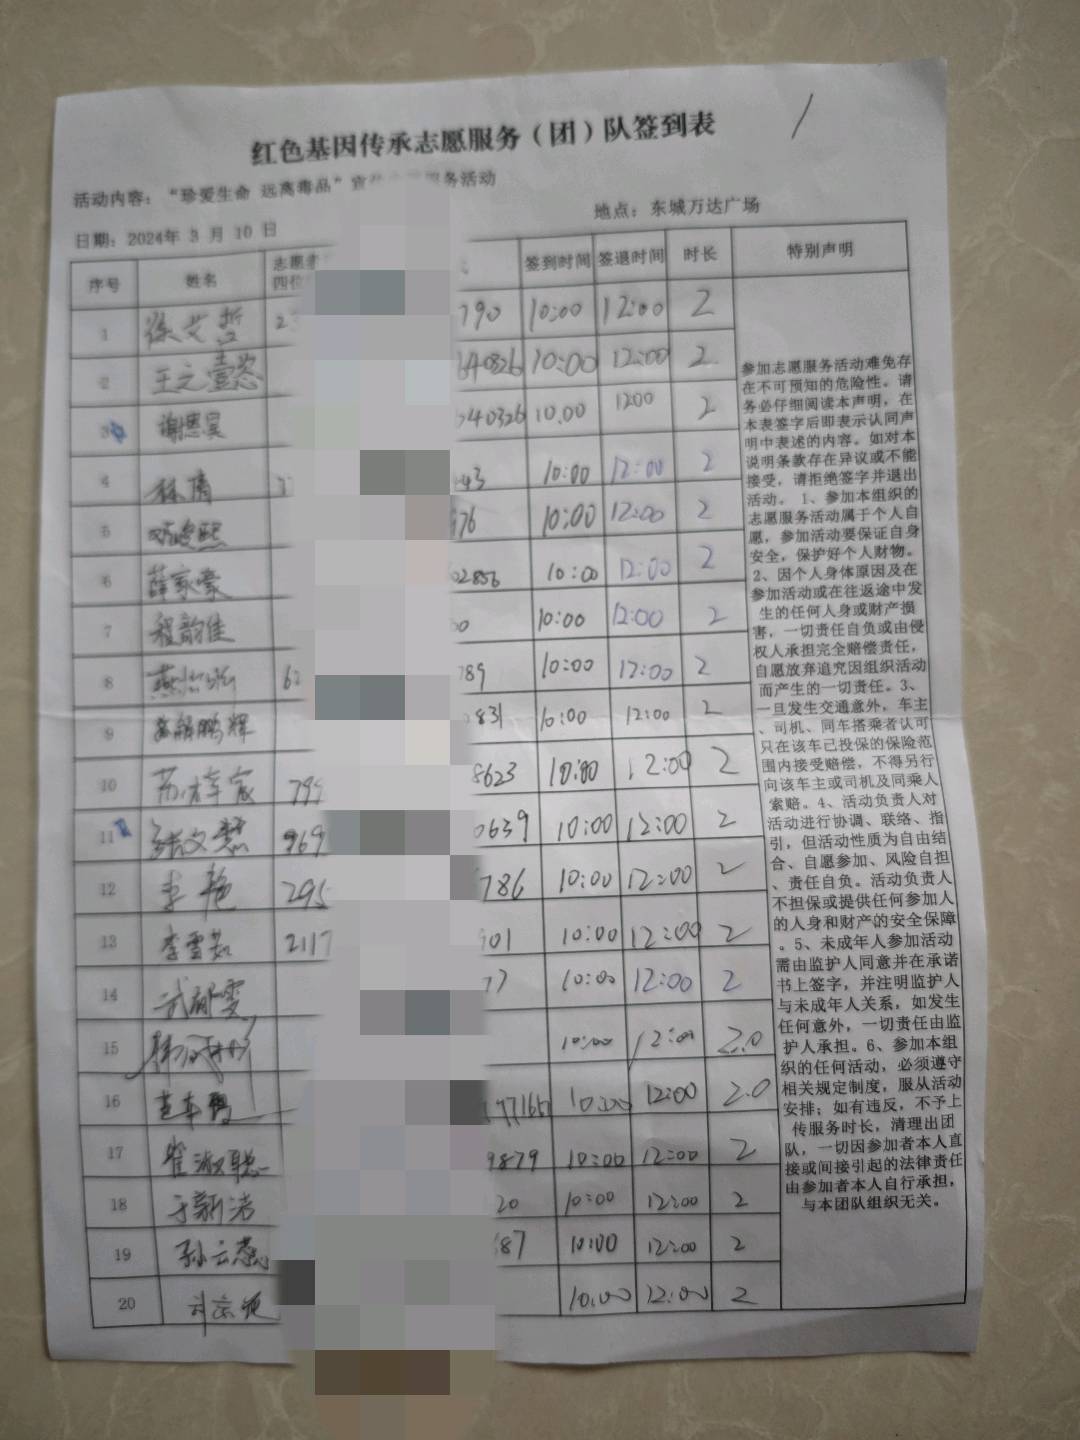 红色基因传承志愿服务（团）队签到表
活动内容：“珍爱生命 远离毒品”宣 服务活动
日期：2024年 3 月 10 日
地点：东城万达广场
序号 姓名 志愿者 四位 签到时间 签退时间 时长 特别声明
1 徐艾哲 2 790 10:00 12:00 2
2 王元懿 640826 10:00 12:00 2
3 谢恩昊 240326 10.00 1200 2
4 林 243 10:00 12:00 2
5 976 10:00 12:00 2
6 薛家豪 02856 10:00 12:00 2
7 程韵佳 10:00 12:00 2
8 62 789 10:00 12:00 2
9 鹏辉 2831 10:00 12:00 2
10 799 8623 10:00 12:00 2
11 张文慧 969 0639 10:00 12:00 2
12 李艳 295 786 10:00 12:00 2
13 李雪茹 2117 901 10:00 12:00 2
14 武郁雯 77 10:00 12:00 2
15 10:00 12:00 2.0
16 7716 10:00 12:00 2.0
17 崔淑聪 9879 10:00 12:00 2
18 于新洁 20 10:00 12:00 2
19 孙云蕊 687 10:00 12:00 2
20 10:00 12:00 2
参加志愿服务活动难免存
在不可预知的危险性。请
务必仔细阅读本声明，在
本表签字后即表示认同声
明中表述的内容。如对本
说明条款存在异议或不能
接受，请拒绝签字并退出
活动。1、参加本组织的
志愿服务活动属于个人自
愿，参加活动要保证自身
安全，保护好个人财物。
2、因个人身体原因及在
参加活动或在往返途中发
生的任何人身或财产损
害，一切责任自负或由侵
权人承担完全赔偿责任，
自愿放弃追究因组织活动
而产生的一切责任。3、
一旦发生交通意外，车主
、司机、同车搭乘者认可
只在该车已投保的保险范
围内接受赔偿，不得另行
向该车主或司机及同乘人
索赔。4、活动负责人对
活动进行协调、联络、指
引，但活动性质为自由结
合、自愿参加、风险自担
、责任自负。活动负责人
不担保或提供任何参加人
的人身和财产的安全保障
。5、未成年人参加活动
需由监护人同意并在承诺
书上签字，并注明监护人
与未成年人关系，如发生
任何意外，一切责任由监
护人承担。6、参加本组
织的任何活动，必须遵守
相关规定制度，服从活动
安排；如有违反，不予上
传服务时长，清理出团
队，一切因参加者本人直
接或间接引起的法律责任
由参加者本人自行承担，
与本团队组织无关。